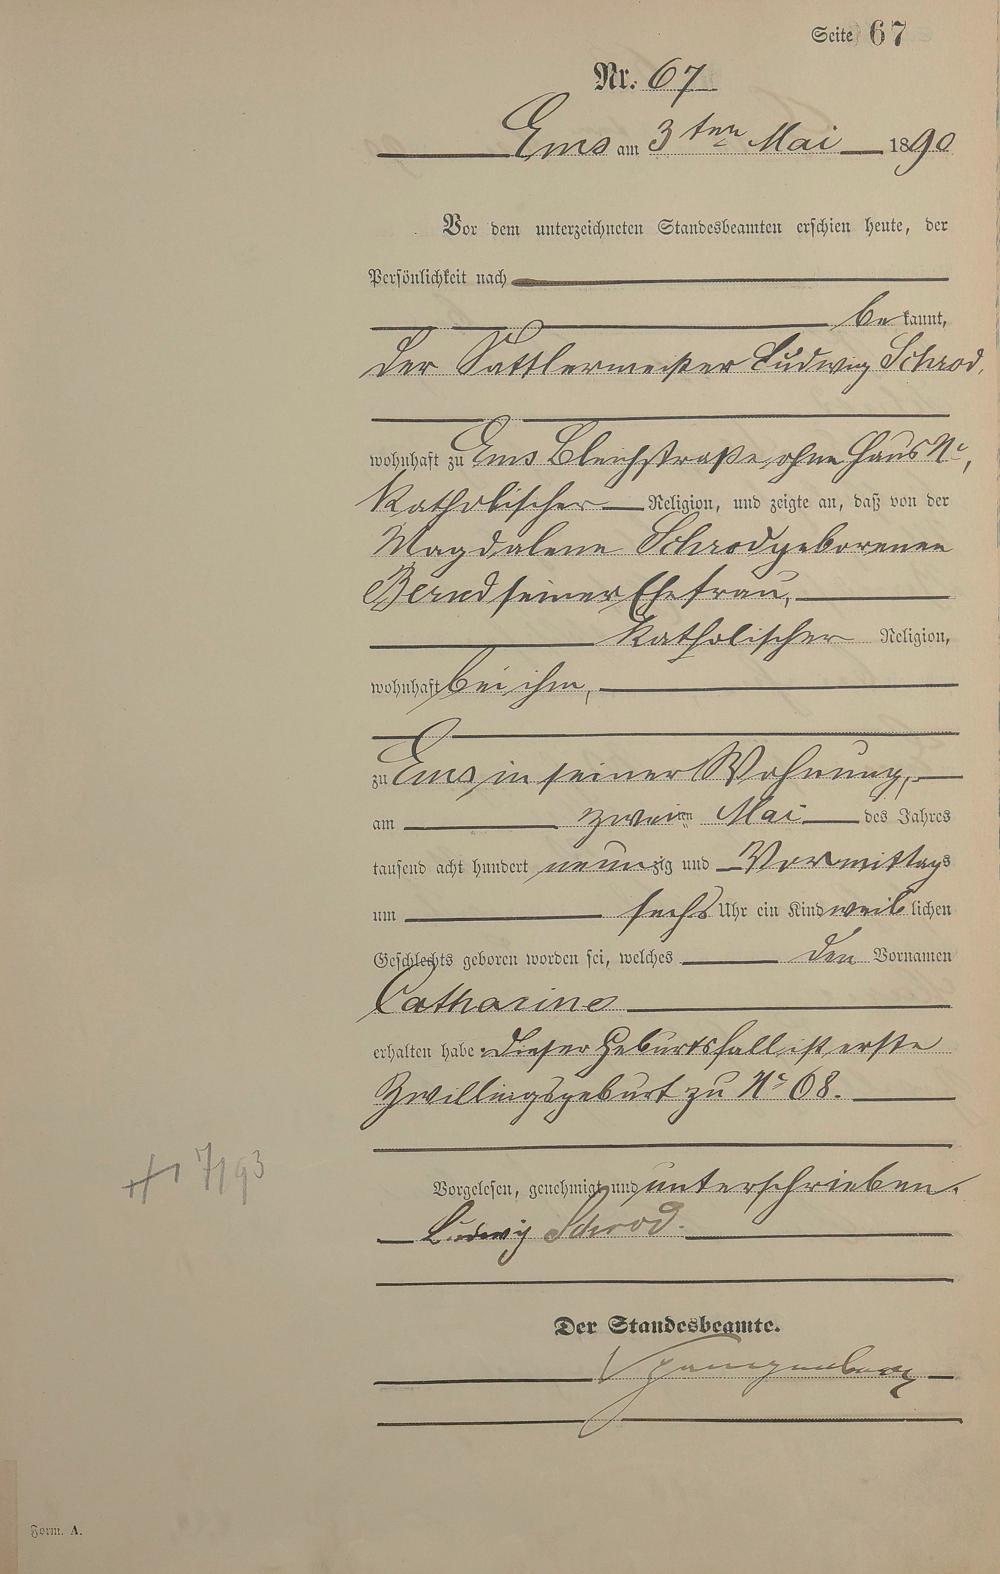 Seite 67
Nr. 67
Ems am 3ten Mai 1890
Vor dem unterzeichneten Standesbeamten erschien heute, der
Persönlichkeit nach
bekannt,
der Sattlermeister Ludwig Schrod,
wohnhaft zu Ems Bleichstraße, ohne Haus No,
katholischer Religion, und zeigte an, daß von der
Magdalena Schrod geborenen
Bernd seiner Ehefrau,
katholischer Religion,
wohnhaft bei ihm,
zu Ems in seiner Wohnung,
am zweiten Mai des Jahres
tausend acht hundert neunzig und Vormittags
um sechs Uhr ein Kind weiblichen
Geschlechts geboren worden sei, welches den Vornamen
Catharine
erhalten habe. Dieser Geburtsfall ist erste
Zwillingsgeburt zu No 68.
Vorgelesen, genehmigt und unterschrieben.
Ludwig Schrod.
Der Standesbeamte.
Form. A.